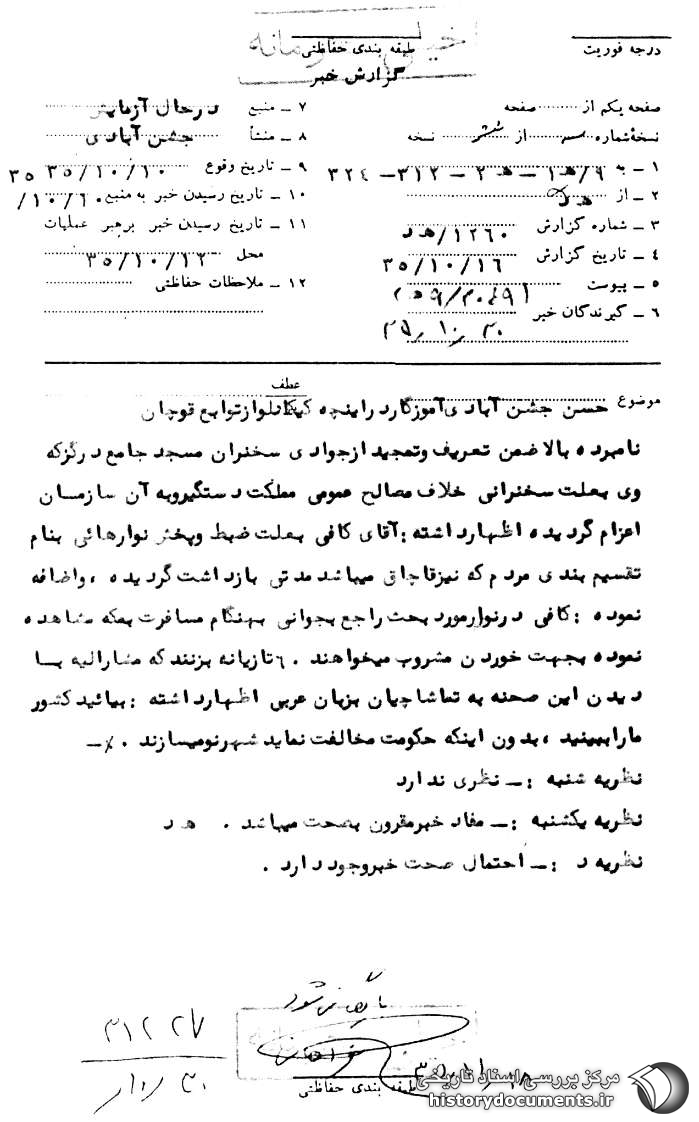 درجه فوریت
طبقه بندی حفاظتی
خیلی محرمانه
گزارش خبر
صفحه یکم از ........ صفحه
نسخهٔ شماره ... از ششر نسخه
۱ ـ به ۹/ه‍۱ ـ ه‍۲ ـ ۳۱۲ ـ ۳۲٤
۲ ـ از ه‍ د
۳ ـ شماره گزارش ۱۲۶۰/ه‍ د
٤ ـ تاریخ گزارش ۳۵/۱۰/۱۶
۵ ـ پیوست
۶ ـ گیرندگان خبر
۳۵/۱۰/۳۰
۷ ـ منبع درحال آزمایش
۸ ـ منشأ جشن آبادی
۹ ـ تاریخ وقوع ۳۵/۱۰/۱۰ ۳۵
۱۰ ـ تاریخ رسیدن خبر به منبع ۱۰/۱۰/
۱۱ ـ تاریخ رسیدن خبر برهبر عملیات
محل ۳۵/۱۰/۱۲
۱۲ ـ ملاحظات حفاظتی
عطف
موضوع حسن جشن آبادی آموزگار دراینچه کیکانلو از توابع قوچان
نامبرده بالا ضمن تعریف وتمجید ازجوادی سخنران مسجد جامع درگزکه
وی بعلت سخنرانی خلاف مصالح عمومی مملکت دستگیروبه آن سازمان
اعزام گردیده اظهارداشته : آقای کافی بعلت ضبط وپخش نوارهائی بنام
تقسیم بندی مردم که نیزقاچاق میباشد مدتی بازداشت گردیده ، واضافه
نموده : کافی درنوارمورد بحث راجع بجوانی بهنگام مسافرت بمکه مشاهده
نموده بجهت خوردن مشروب میخواهند ۶۰ تازیانه بزنند که مشارالیه با
دیدن این صحنه به تماشاچیان بزبان عربی اظهارداشته : بیائید کشور
ماراببینید ، بدون اینکه حکومت مخالفت نماید شهرنومیسازند ./ـ
نظریه شنبه : ـ نظری ندارد
نظریه یکشنبه : ـ مفاد خبرمقرون بصحت میباشد . ه‍ د
نظریه د : ـ احتمال صحت خبروجود دارد .
بایگانی شود
۳۱۲۲۷
طبقه بندی حفاظتی
مرکز بررسی اسناد تاریخی
historydocuments.ir